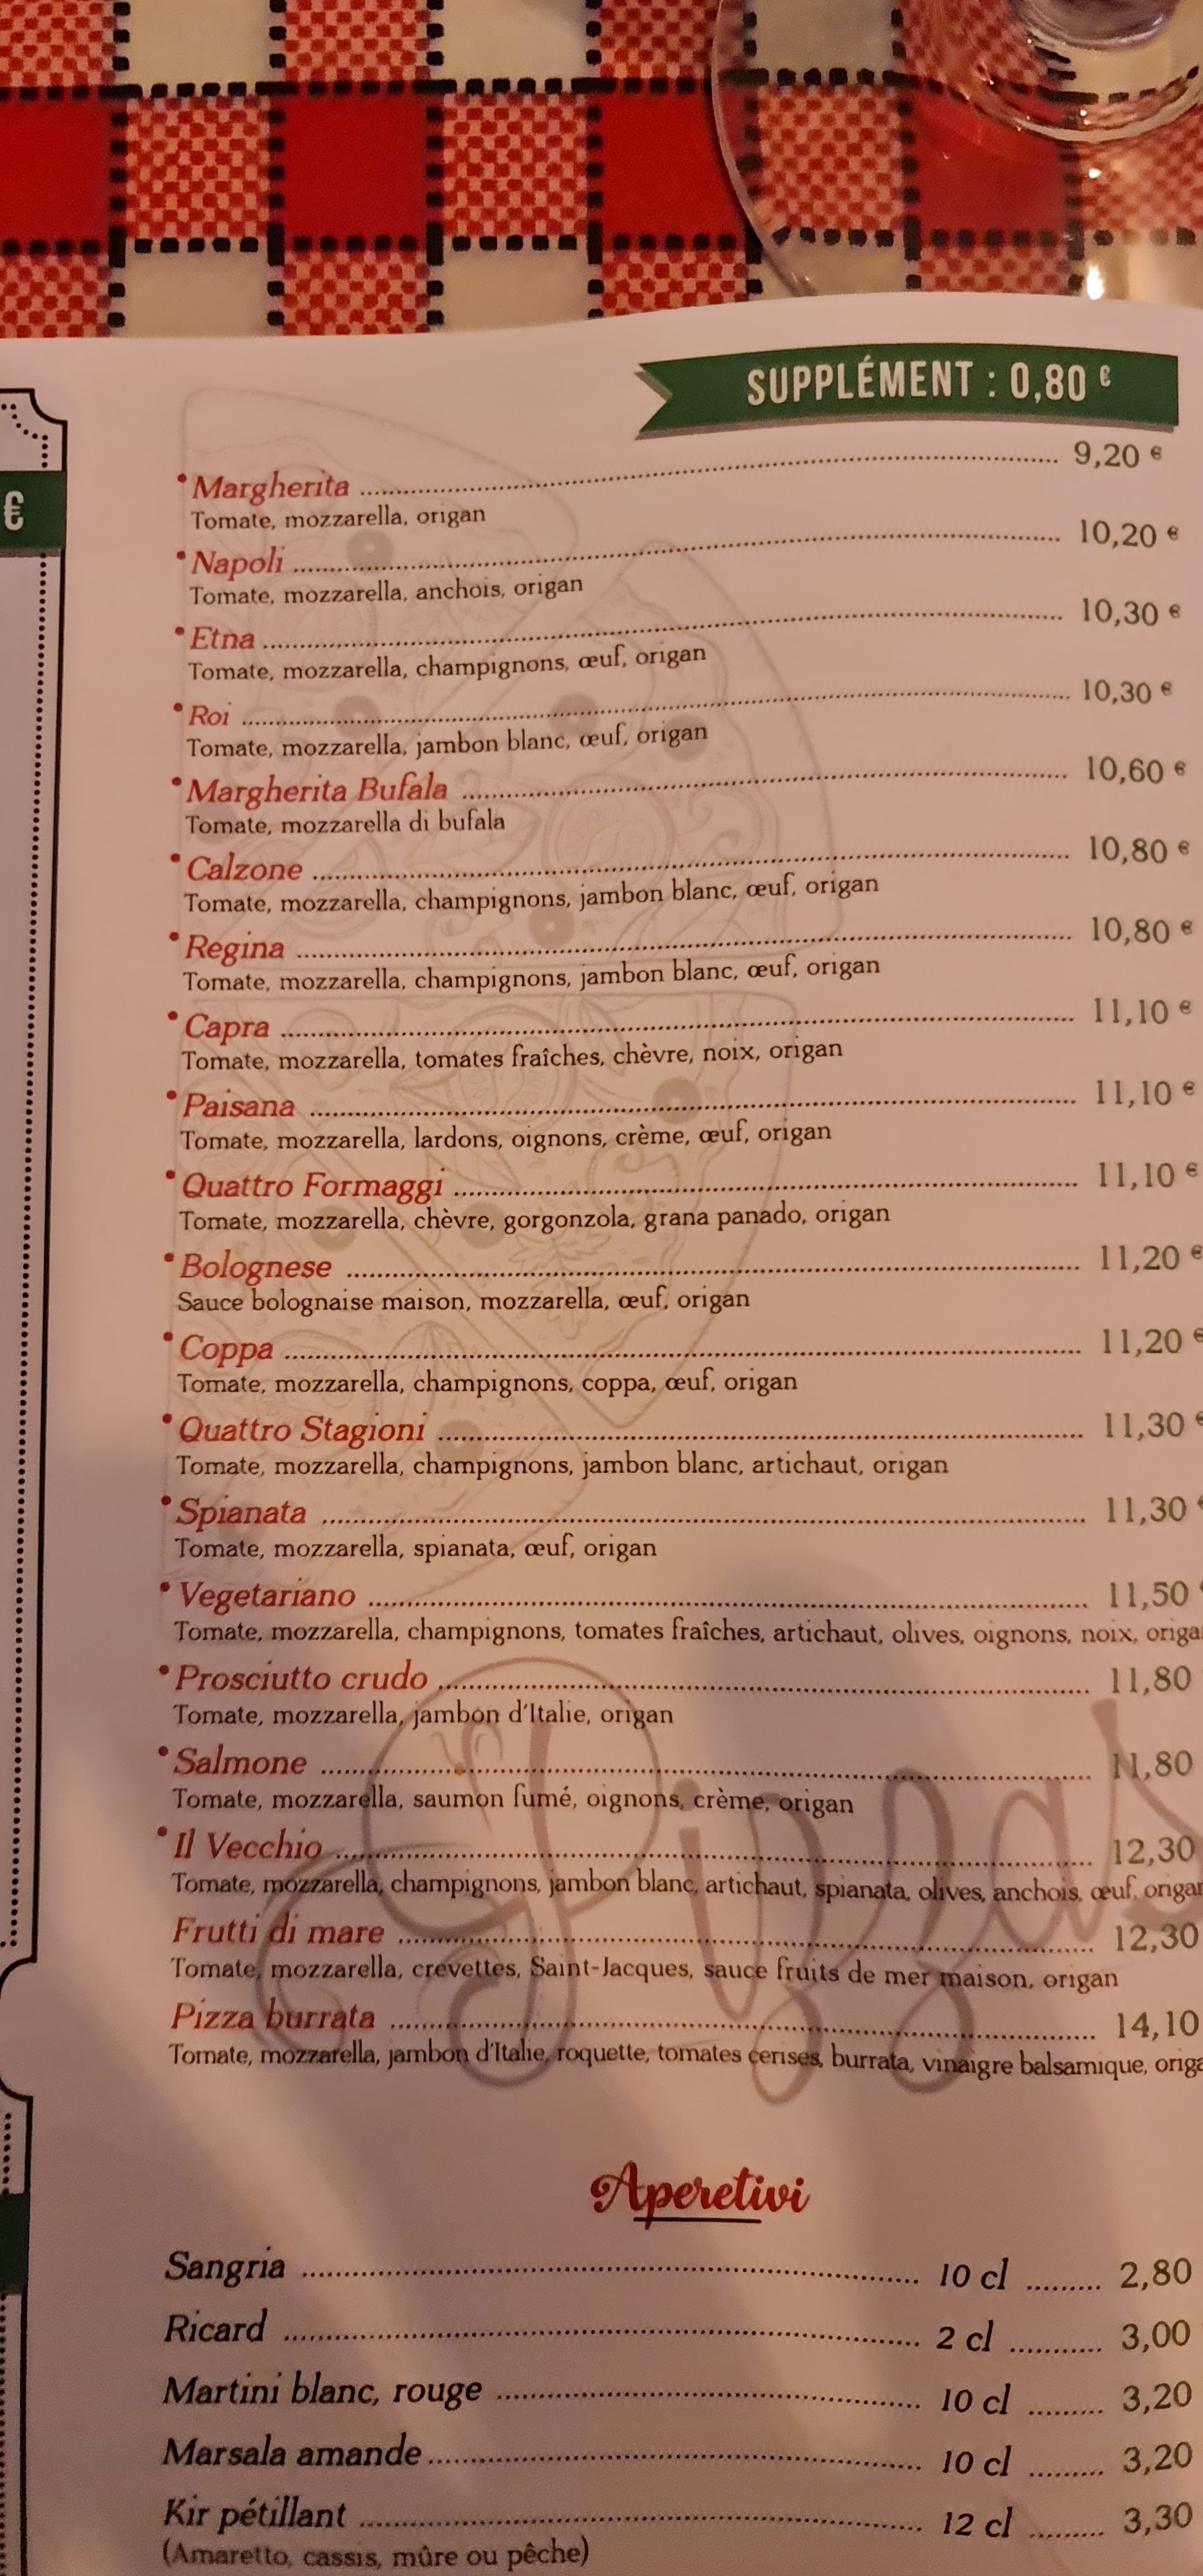 SUPPLÉMENT : 0,80 €
€
• Margherita ........ 9,20 €
Tomate, mozzarella, origan
• Napoli ........ 10,20 €
Tomate, mozzarella, anchois, origan
• Etna ........ 10,30 €
Tomate, mozzarella, champignons, œuf, origan
• Roi ........ 10,30 €
Tomate, mozzarella, jambon blanc, œuf, origan
• Margherita Bufala ........ 10,60 €
Tomate, mozzarella di bufala
• Calzone ........ 10,80 €
Tomate, mozzarella, champignons, jambon blanc, œuf, origan
• Regina ........ 10,80 €
Tomate, mozzarella, champignons, jambon blanc, œuf, origan
• Capra ........ 11,10 €
Tomate, mozzarella, tomates fraîches, chèvre, noix, origan
• Paisana ........ 11,10 €
Tomate, mozzarella, lardons, oignons, crème, œuf, origan
• Quattro Formaggi ........ 11,10 €
Tomate, mozzarella, chèvre, gorgonzola, grana panado, origan
• Bolognese ........ 11,20 €
Sauce bolognaise maison, mozzarella, œuf, origan
• Coppa ........ 11,20 €
Tomate, mozzarella, champignons, coppa, œuf, origan
• Quattro Stagioni ........ 11,30 €
Tomate, mozzarella, champignons, jambon blanc, artichaut, origan
• Spianata ........ 11,30 €
Tomate, mozzarella, spianata, œuf, origan
• Vegetariano ........ 11,50
Tomate, mozzarella, champignons, tomates fraîches, artichaut, olives, oignons, noix, origa
• Prosciutto crudo ........ 11,80
Tomate, mozzarella, jambon d'Italie, origan
• Salmone ........ 11,80
Tomate, mozzarella, saumon fumé, oignons, crème, origan
• Il Vecchio ........ 12,30
Tomate, mozzarella, champignons, jambon blanc, artichaut, spianata, olives, anchois, œuf, origan
Frutti di mare ........ 12,30
Tomate, mozzarella, crevettes, Saint-Jacques, sauce fruits de mer maison, origan
Pizza burrata ........ 14,10
Tomate, mozzarella, jambon d'Italie, roquette, tomates cerises, burrata, vinaigre balsamique, origa
Pizzas
Aperetivi
Sangria ........ 10 cl ........ 2,80
Ricard ........ 2 cl ........ 3,00
Martini blanc, rouge ........ 10 cl ........ 3,20
Marsala amande ........ 10 cl ........ 3,20
Kir pétillant ........ 12 cl ........ 3,30
(Amaretto, cassis, mûre ou pêche)